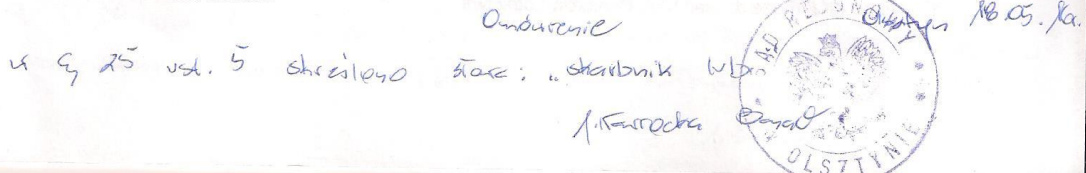 Omówienie Olsztyn 18.05.16r.
w § 25 ust. 5 skreślono słowa: „skarbnik
SĄD REJONOWY
W OLSZTYNIE